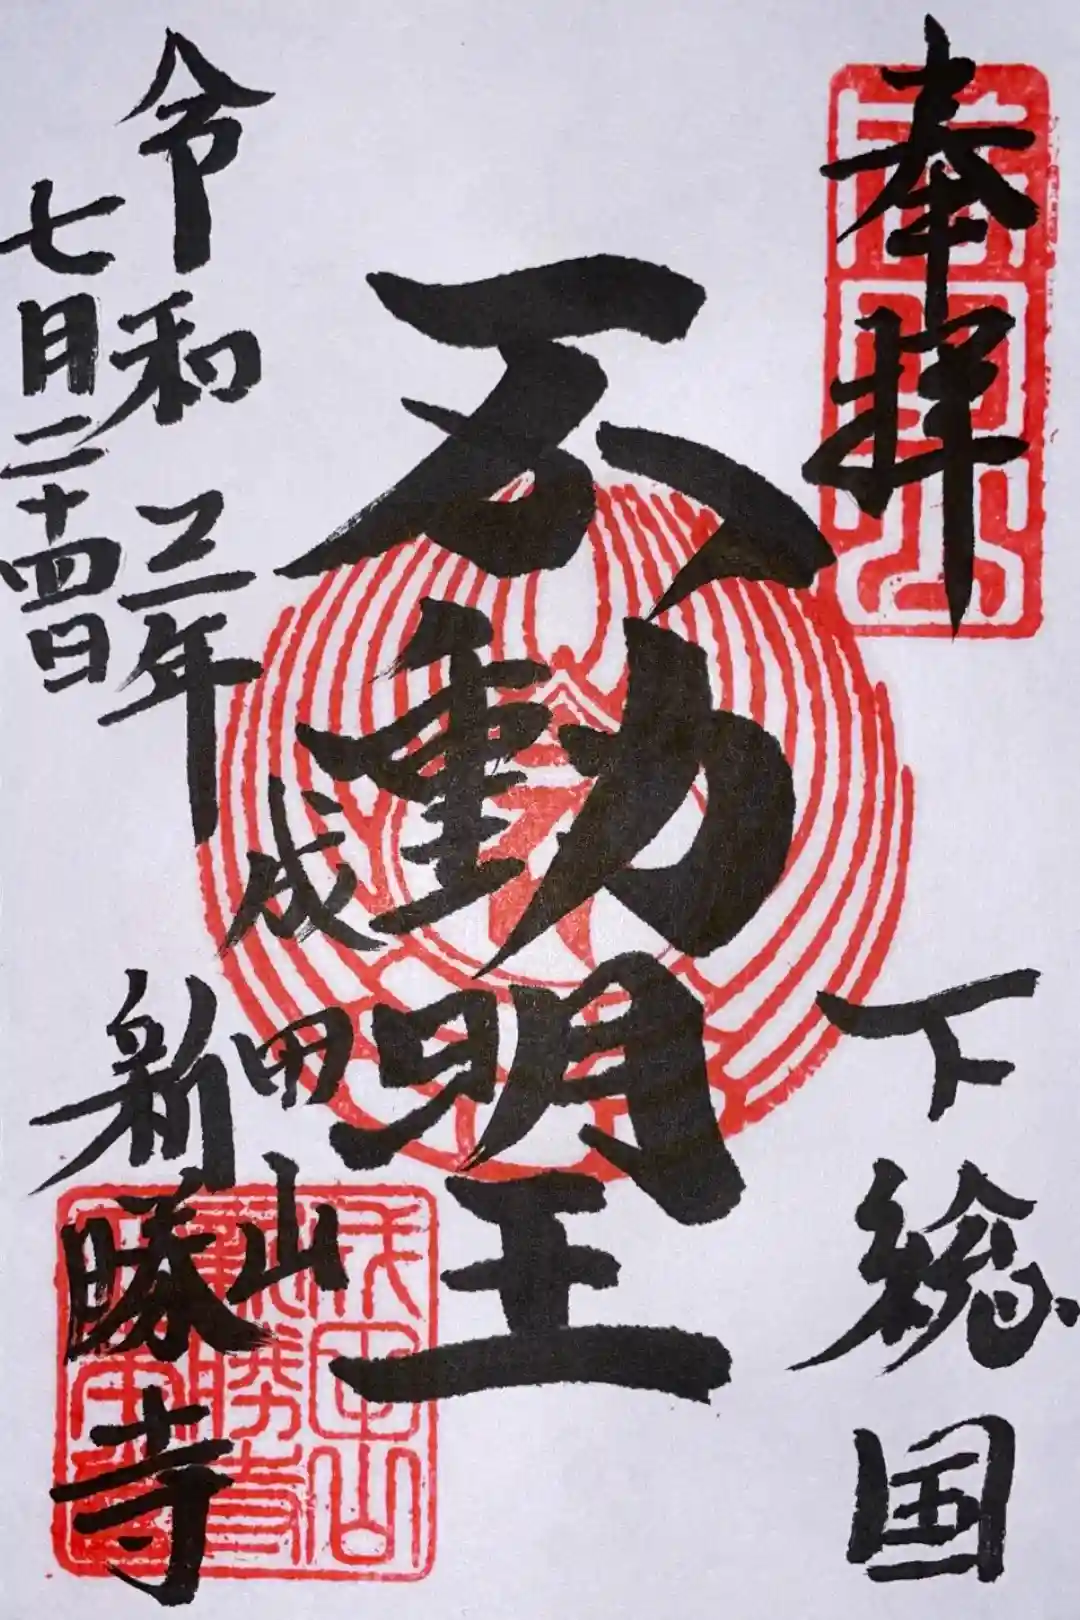 奉拝
下総国
不動明王
令和三年
七月二十四日
成田山
新勝寺